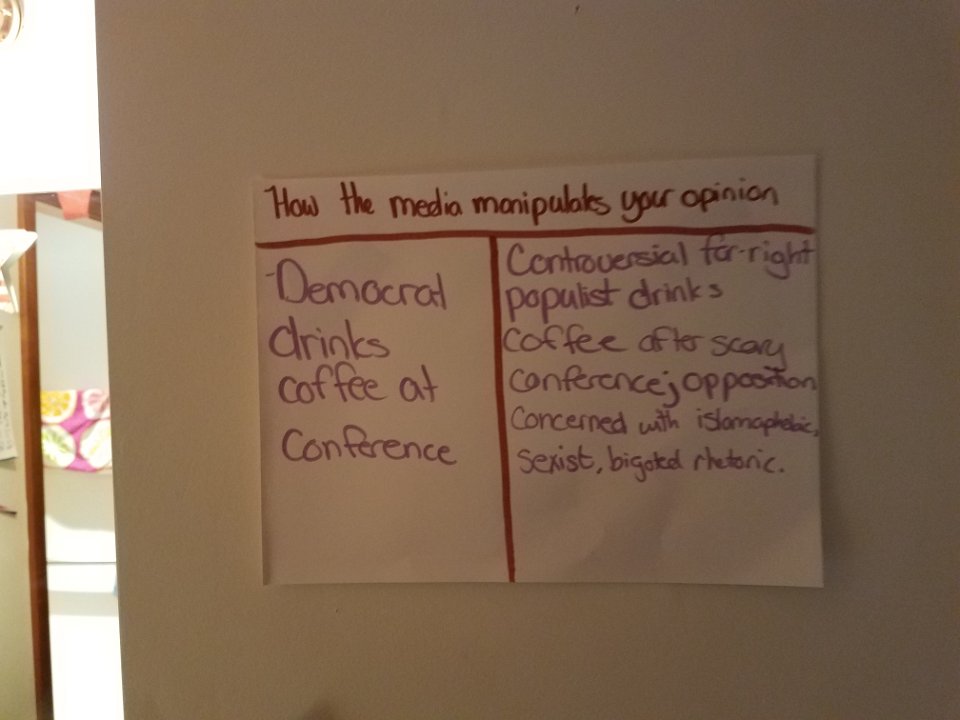 How the media manipulates your opinion
-Democrat
drinks
coffee at
Conference
Controversial far-right
populist drinks
coffee after scary
conference; opposition
Concerned with islamaphobic,
sexist, bigoted rhetoric.